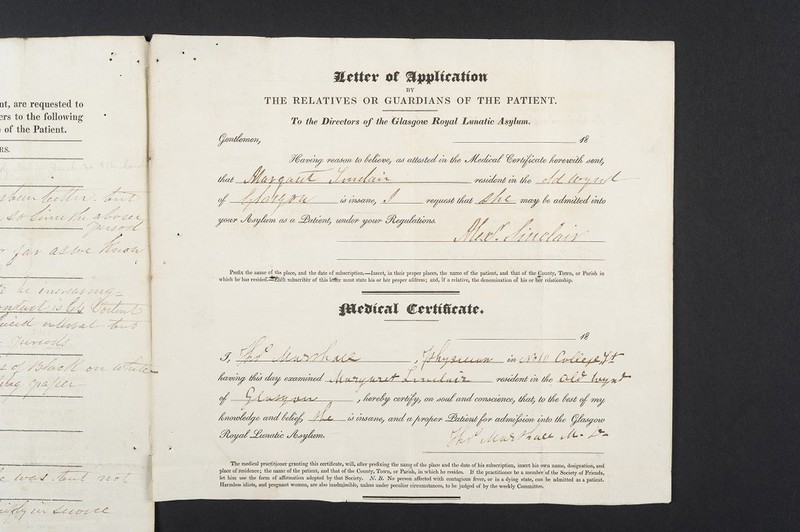 nt, are requested to
ers to the following
of the Patient.
RS.
far as we know
be increasing
Black on white
was but not
Letter of Application
BY
THE RELATIVES OR GUARDIANS OF THE PATIENT.
To the Directors of the Glasgow Royal Lunatic Asylum.
Gentlemen, 18
Having reason to believe, as attested in the Medical Certificate herewith sent,
that Margaret Sinclair resident in the old wynd
of Glasgow is insane, I request that She may be admitted into
your Asylum as a Patient, under your Regulations.
Alexr. Sinclair
Prefix the name of the place, and the date of subscription.—Insert, in their proper places, the name of the patient, and that of the County, Town, or Parish in
which he has resided.—Each subscriber of this letter must state his or her proper address; and, if a relative, the denomination of his or her relationship.
Medical Certificate.
18
I, Thos Marshall, Physician in College St
having this day examined Margaret Sinclair resident in the Old wynd
of Glasgow, hereby certify, on soul and conscience, that, to the best of my
knowledge and belief, She is insane, and a proper Patient for admission into the Glasgow
Royal Lunatic Asylum.
Thos Marshall M. D.
The medical practitioner granting this certificate, will, after prefixing the name of the place and the date of his subscription, insert his own name, designation, and
place of residence; the name of the patient, and that of the County, Town, or Parish, in which he resides. If the practitioner be a member of the Society of Friends,
let him use the form of affirmation adopted by that Society. N. B. No person affected with contagious fever, or in a dying state, can be admitted as a patient.
Harmless idiots, and pregnant women, are also inadmissible, unless under peculiar circumstances, to be judged of by the weekly Committee.